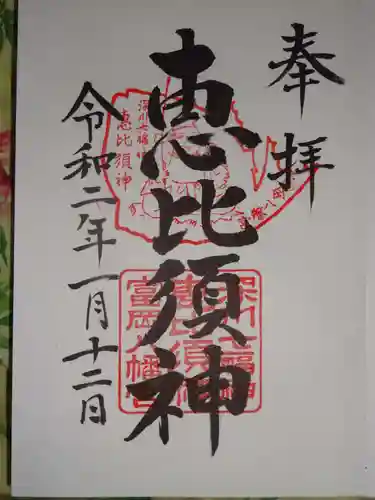 奉拝
恵比須神
令和二年一月十二日
深川七福
恵比須神
深川七福神
恵比須神
富岡八幡宮